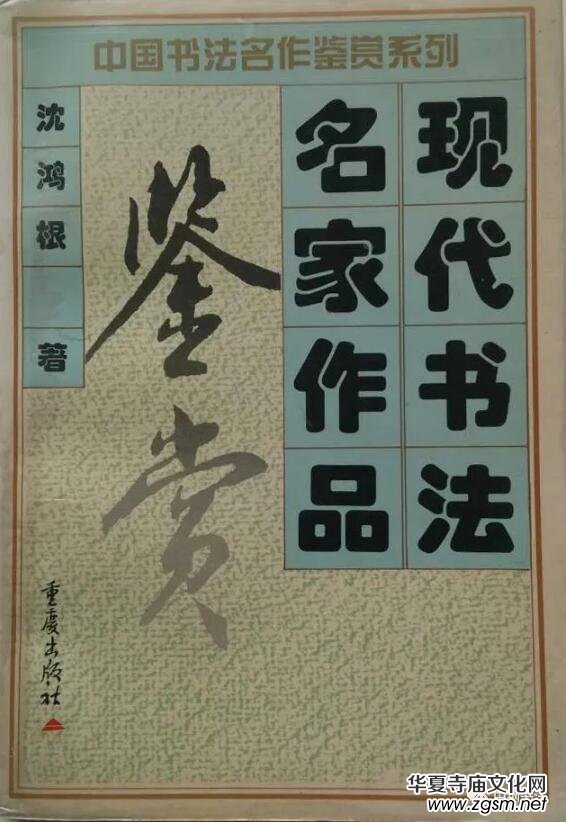 中国书法名作鉴赏系列
现代书法
名家作品
鉴赏
沈鸿根 著
重庆出版社
华夏寺庙文化网
www.zgsm.net